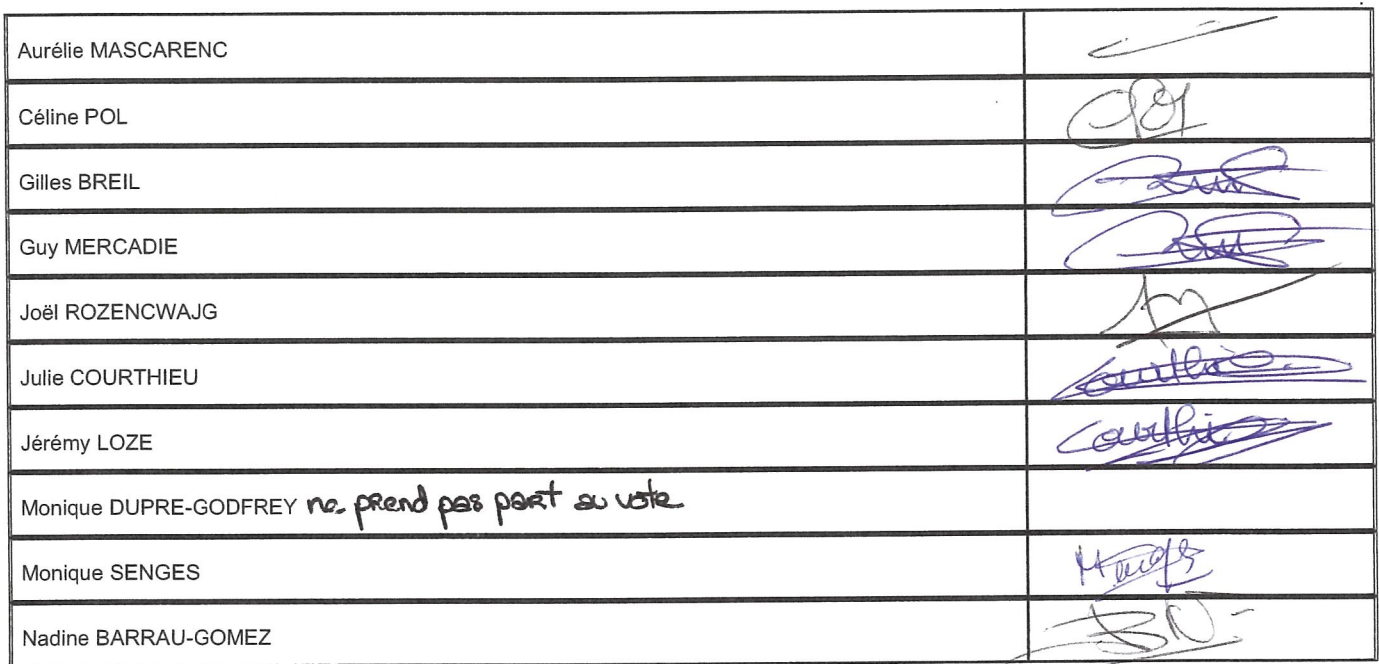 Aurélie MASCARENC
Céline POL
Gilles BREIL
Guy MERCADIE
Joël ROZENCWAJG
Julie COURTHIEU
Jérémy LOZE
Monique DUPRE-GODFREY ne prend pas part au vote
Monique SENGES
Nadine BARRAU-GOMEZ